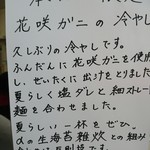 花咲ガニの冷やし
久しぶりの冷やしです。
ふんだんに花咲ガニを使用
し、ぜいたくに出汁をとりました
夏らしく塩ダレと細ストレー
麺を合わせました。
夏らしい一杯をぜひ、
の生海苔雑炊との組み